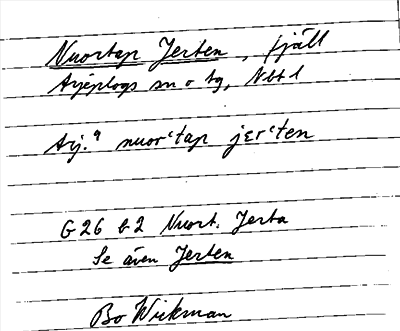 Nuortap Jerten, fjäll
Arjeplogs sn o tg, Nbtl
Arj. a nuor‘tap jɛr‘ten
G 26 b2 Nuort. Jerta
Se även Jerten
Bo Wickman